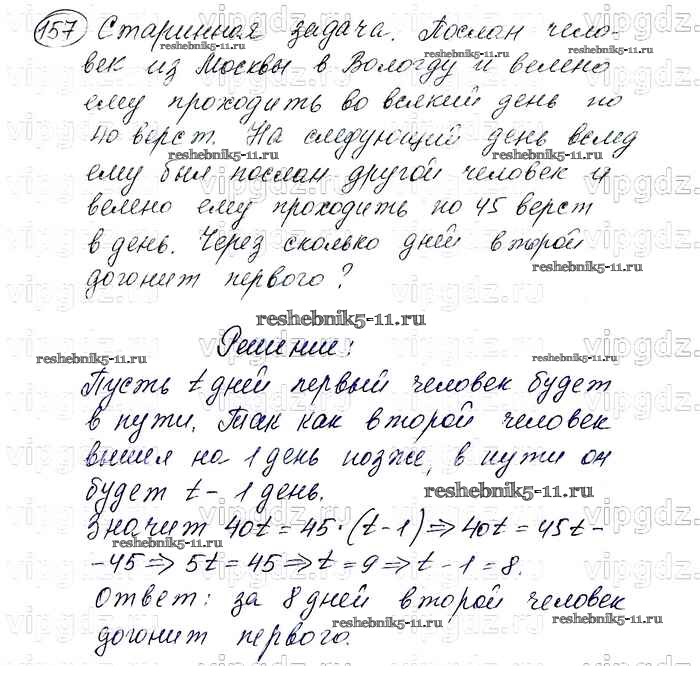 157 Старинная задача. Послан чело-
век из Москвы в Вологду и велено
ему проходить во всякий день по
40 верст. На следующий день вслед
ему был послан другой человек и
велено ему проходить по 45 верст
в день. Через сколько дней второй
догонит первого?
reshebnik5-11.ru
Решение:
Пусть t дней первый человек будет
в пути. Так как второй человек
вышел на 1 день позже, в пути он
будет t - 1 день.
Значит 40t = 45·(t-1) ⇒ 40t = 45t -
- 45 ⇒ 5t = 45 ⇒ t = 9 ⇒ t - 1 = 8.
Ответ: за 8 дней второй человек
догонит первого.